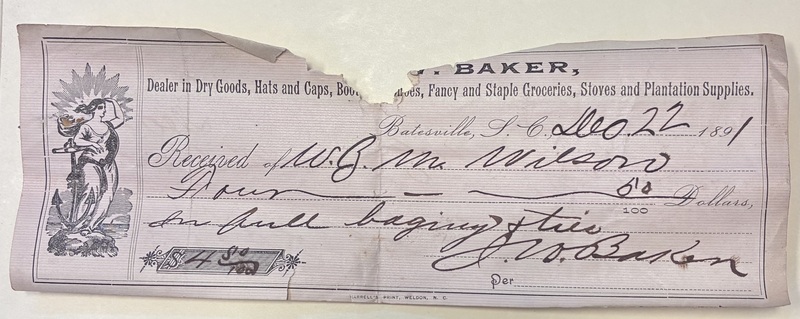 . BAKER,
Dealer in Dry Goods, Hats and Caps, Boo oes, Fancy and Staple Groceries, Stoves and Plantation Supplies.
Batesville, S. C. Dec 22 1891
Received of W. J. Mc Wilson
Four 50/100 Dollars,
In full baging & ties
$ 4 50/100
J. W. Baker
Per
PRINT, WELDON, N. C.